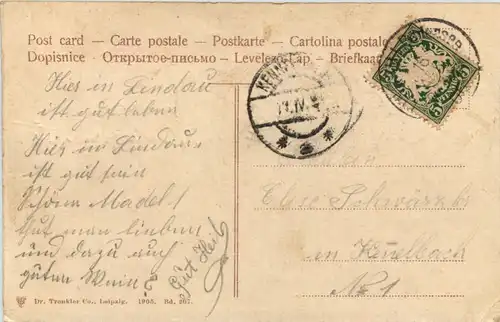 Post card – Carte postale – Postkarte – Cartolina postale
Dopisnice – Открытое-письмо – Levelező-Lap. – Briefkaart
Hier in Lindau
ist gut leben
Hier in Lindau
ist gut sein
Schöne Madel
Gut man lieben
und dazu auch
guten Wein
Gut Heil
Else Schwärzler
in Kennelbach
No 1
11.IV.
BAYERN
5
Dr. Trenkler Co., Leipzig. 1905. Bd. 267.